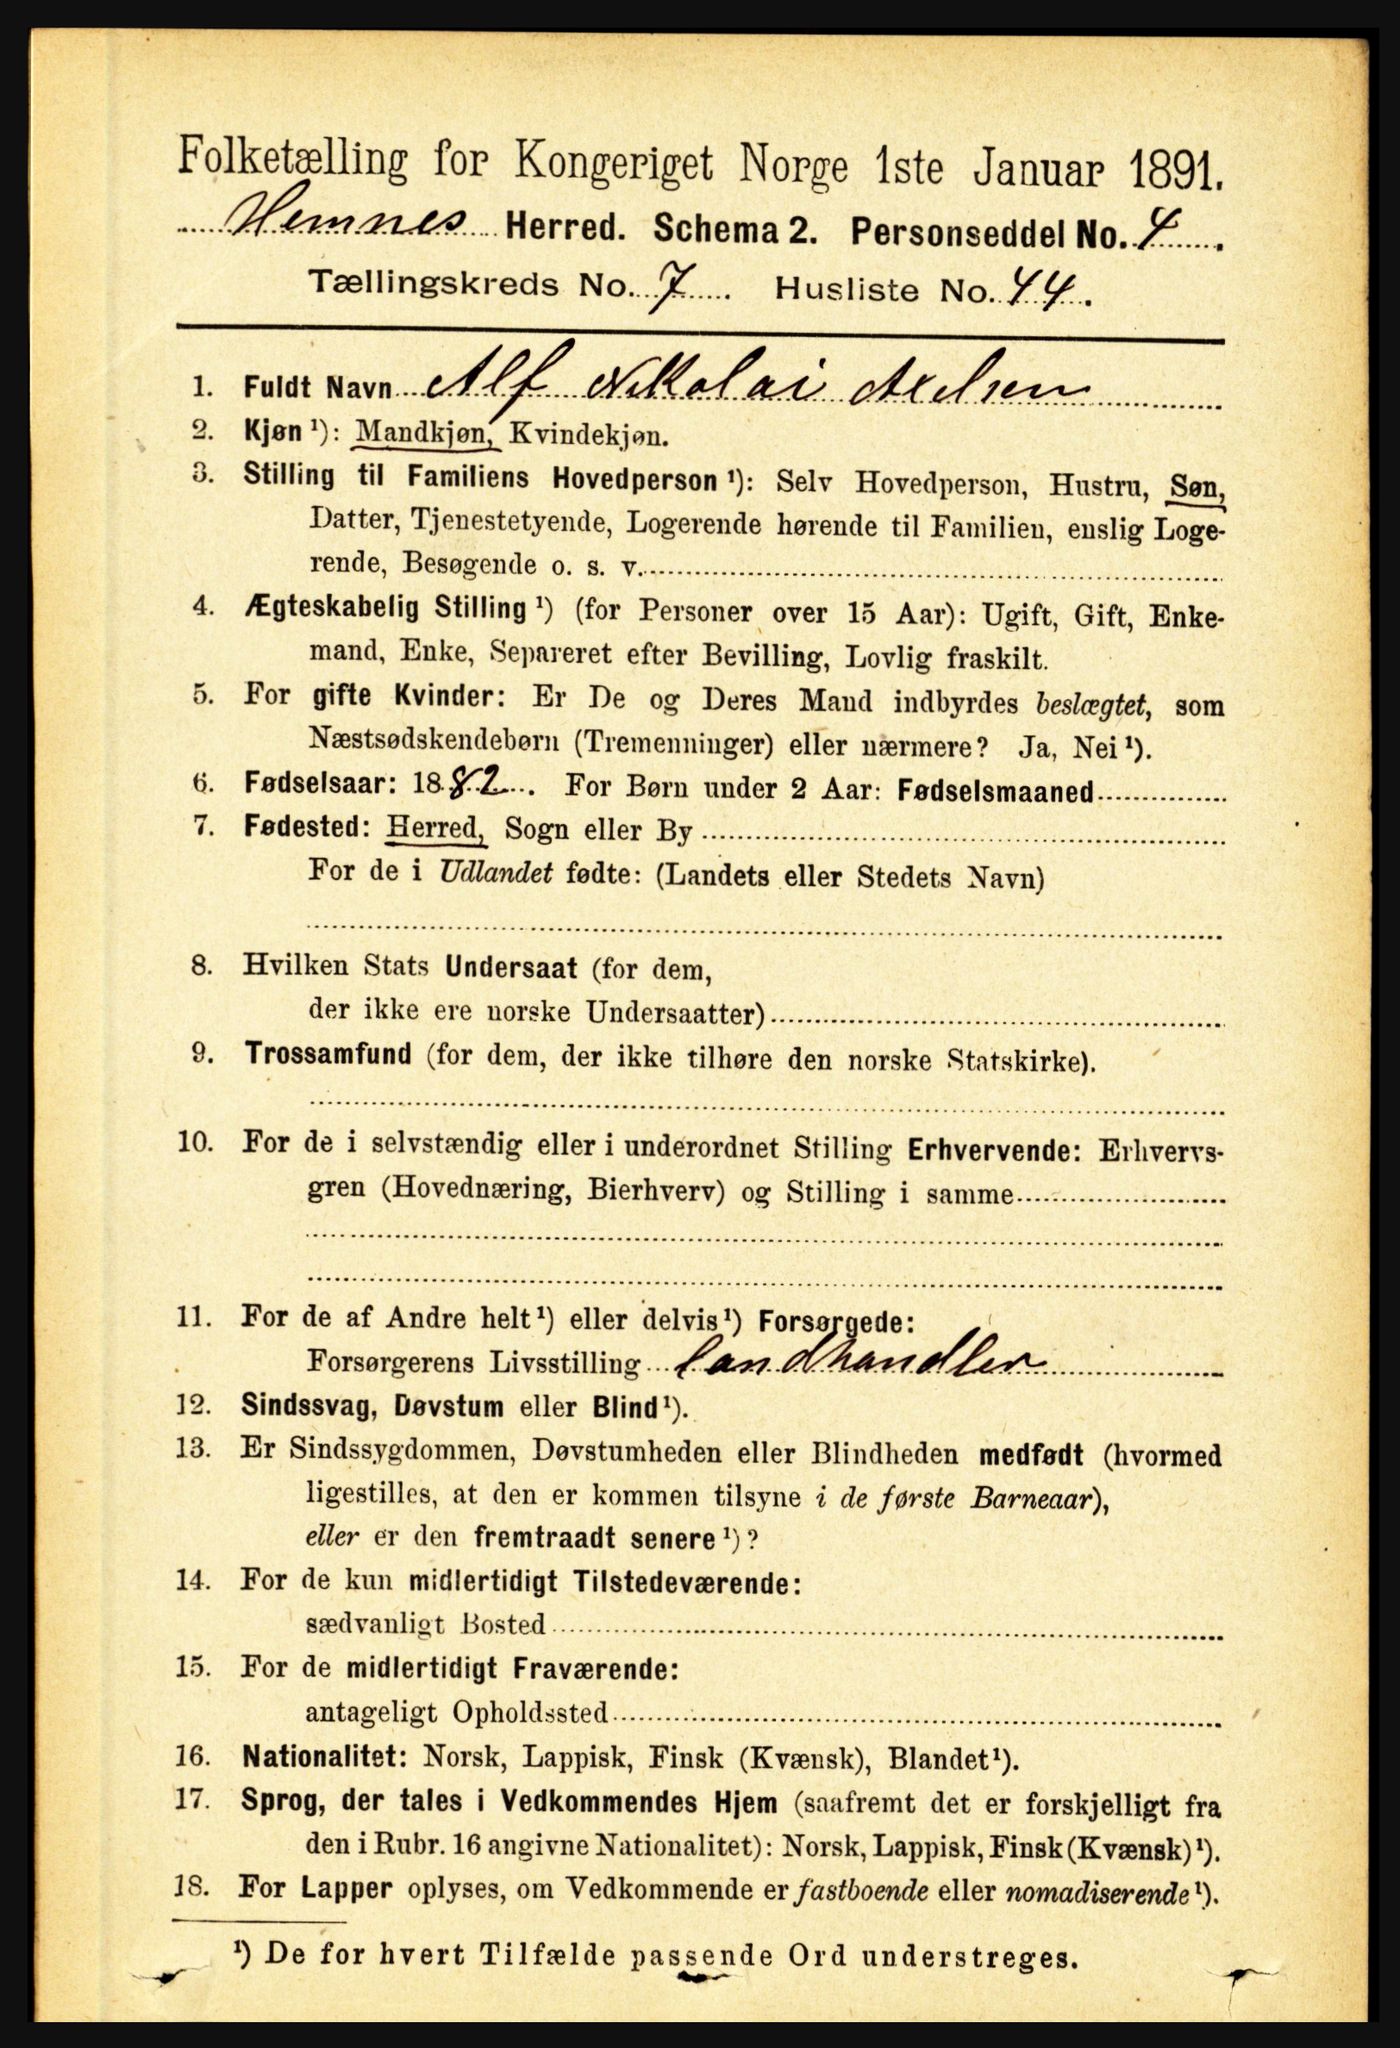 Folketælling for Kongeriget Norge 1ste Januar 1891.
Hemnes Herred. Schema 2. Personseddel No. 4.
Tællingskreds No. 7. Husliste No. 44.
1. Fuldt Navn Alf Nikolai Axelsen
2. Kjøn ¹): Mandkjøn, Kvindekjøn.
3. Stilling til Familiens Hovedperson ¹): Selv Hovedperson, Hustru, Søn,
Datter, Tjenestetyende, Logerende hørende til Familien, enslig Loge-
rende, Besøgende o. s. v.
4. Ægteskabelig Stilling ¹) (for Personer over 15 Aar): Ugift, Gift, Enke-
mand, Enke, Separeret efter Bevilling, Lovlig fraskilt.
5. For gifte Kvinder: Er De og Deres Mand indbyrdes beslægtet, som
Næstsødskendebørn (Tremenninger) eller nærmere? Ja, Nei ¹).
6. Fødselsaar: 1882. For Børn under 2 Aar: Fødselsmaaned
7. Fødested: Herred, Sogn eller By
For de i Udlandet fødte: (Landets eller Stedets Navn)
8. Hvilken Stats Undersaat (for dem,
der ikke ere norske Undersaatter)
9. Trossamfund (for dem, der ikke tilhøre den norske Statskirke).
10. For de i selvstændig eller i underordnet Stilling Erhvervende: Erhvervs-
gren (Hovednæring, Bierhverv) og Stilling i samme
11. For de af Andre helt ¹) eller delvis ¹) Forsørgede:
Forsørgerens Livsstilling Landhandler
12. Sindssvag, Døvstum eller Blind ¹).
13. Er Sindssygdommen, Døvstumheden eller Blindheden medfødt (hvormed
ligestilles, at den er kommen tilsyne i de første Barneaar),
eller er den fremtraadt senere ¹)?
14. For de kun midlertidigt Tilstedeværende:
sædvanligt Bosted
15. For de midlertidigt Fraværende:
antageligt Opholdssted
16. Nationalitet: Norsk, Lappisk, Finsk (Kvænsk), Blandet ¹).
17. Sprog, der tales i Vedkommendes Hjem (saafremt det er forskjelligt fra
den i Rubr. 16 angivne Nationalitet): Norsk, Lappisk, Finsk (Kvænsk) ¹).
18. For Lapper oplyses, om Vedkommende er fastboende eller nomadiserende ¹).
¹) De for hvert Tilfælde passende Ord understreges.